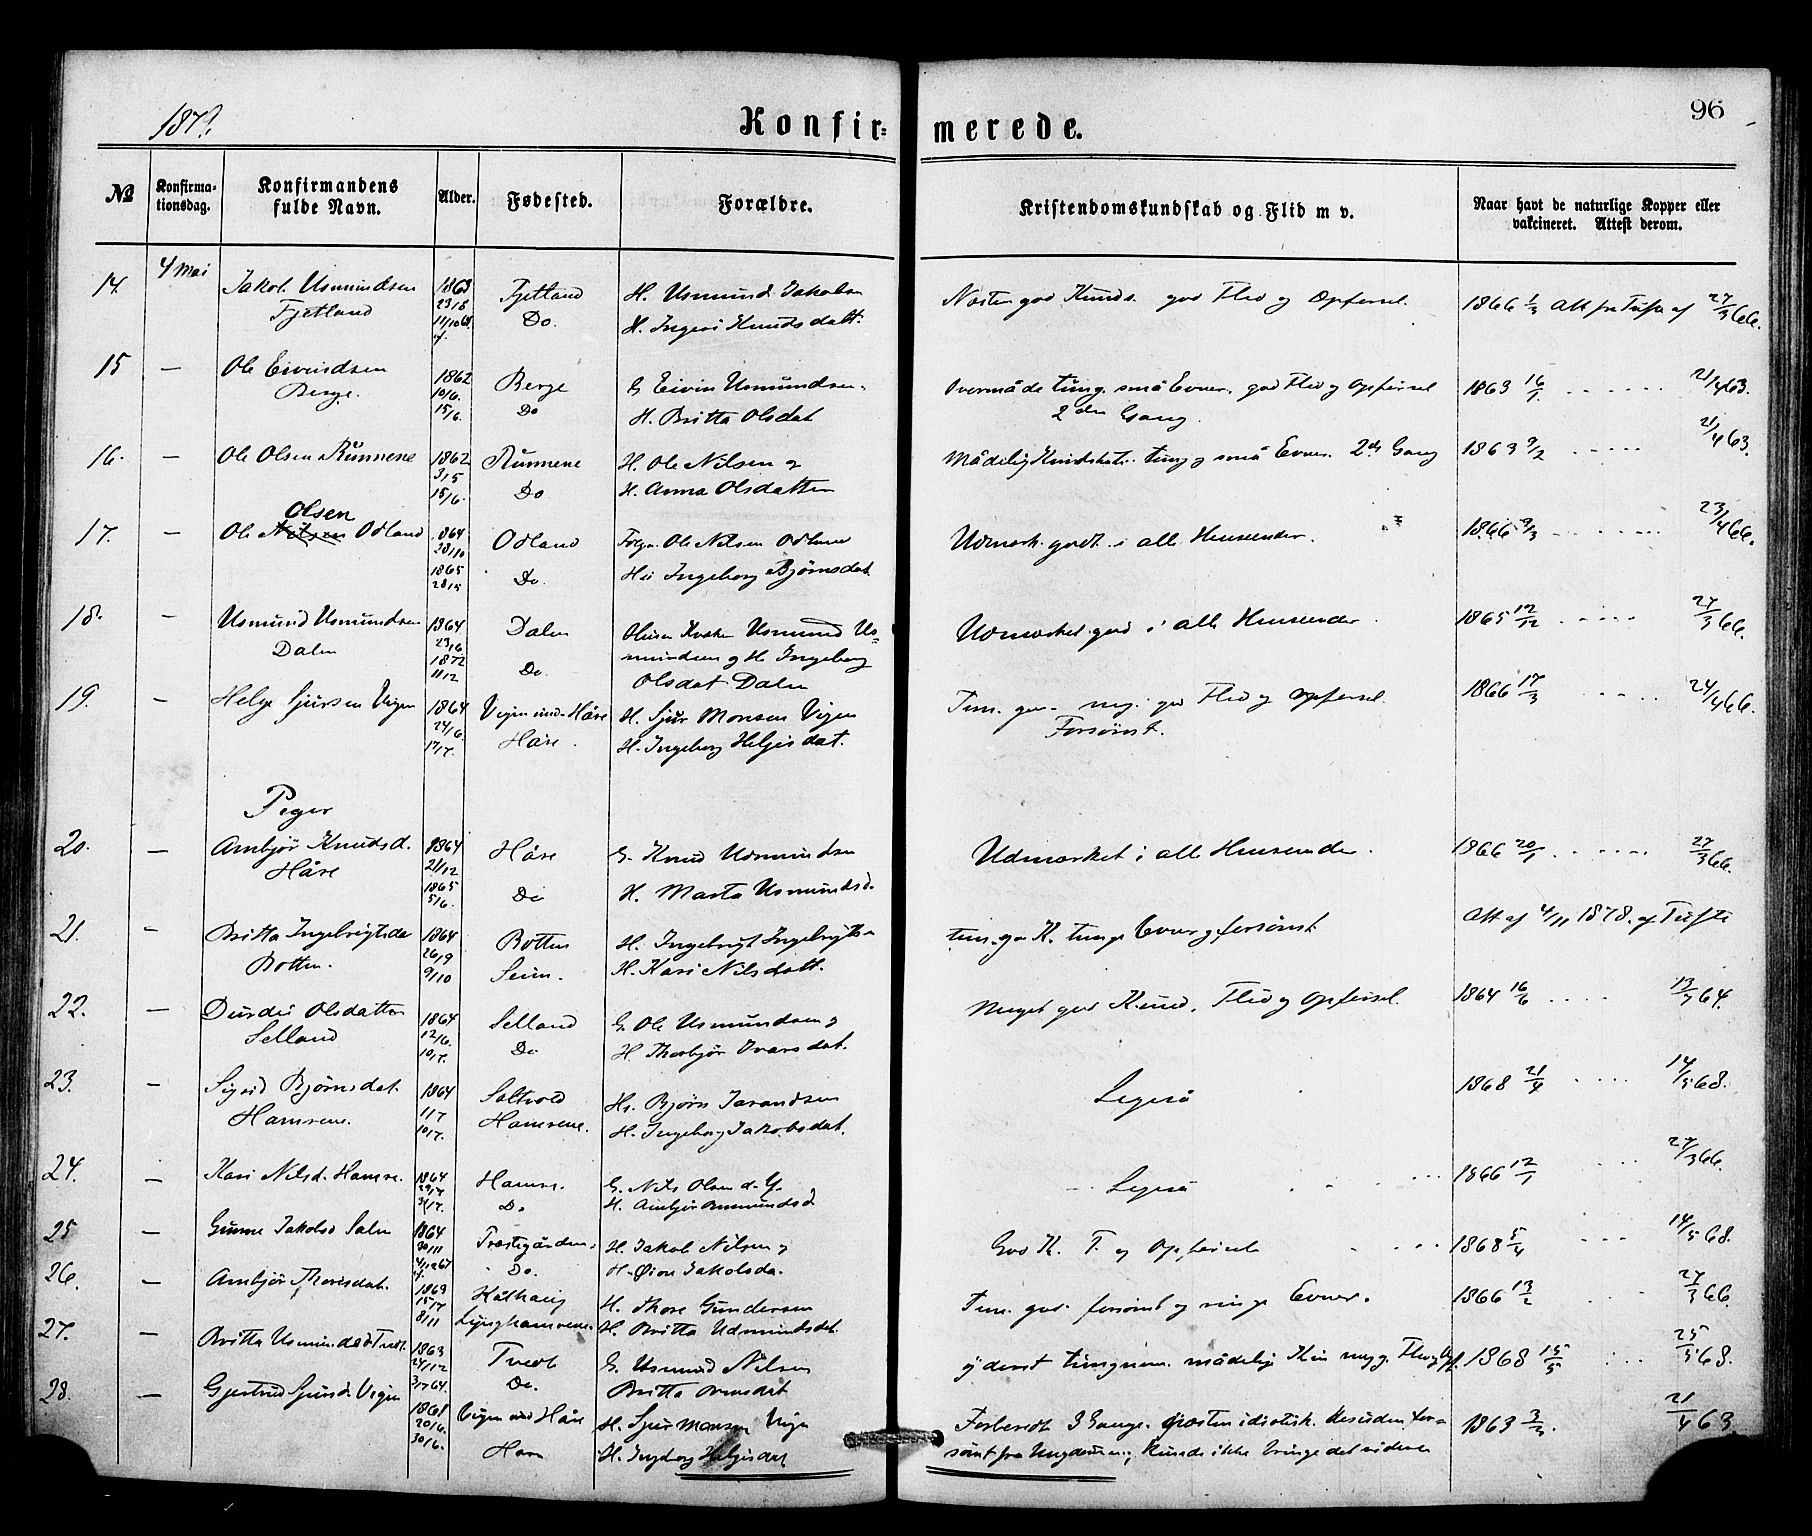 187
Konfir- merede.
96
№
Konfirma-
tionsdag.
Konfirmandens
fulde Navn.
Alder.
Fødested.
Forældre.
Kristendomskundskab og Flid m v.
Naar havt de naturlige Kopper eller
vakcineret. Attest derom.
14. 4 Mai Jakob Usmundsen 1863 Fjetland H. Usmund Jakobsen
Fjetland Do. H. Ingeri Knudsdatt.
Næsten god Kunds. god Flid og Opførsel. 1866 1/3 Att fra Tufte af 27/3 66.
15 — Ole Eivindsen 1862 Berge G Eivin Usmundsen
Berge. 10/6. 15/6. Do H. Britta Olsdat
Overmåde tung. små Evner. god Flid og Opførsel 1863 16/1. 21/4 63.
2den Gang.
16. — Ole Olsen Rünnene 1862 Rünnene H. Ole Nilsen og
3/5 15/6. Do H. Anna Olsdatter
Mådelig Kundskab. tung og små Evner. 2den Gang 1863 9/2 21/4 63.
17. — Ole Olsen Odland 1864 28/10 Odland Ole Nilsen Odland
1865 Do. Ingeborg Bjørnsdat
Udmærk. godt i alle Henseender. 1866 9/3 23/4 66.
18. — Usmund Usmundsen 1864 Dalen Usmund Us-
Dalen 23/6. 1872 11/12 Do. mundsen og H Ingeborg
Olsdat Dalen
Udmærket god i alle Henseender. 1865 12/12 27/3 66.
19. — Helge Sjursen Vigen 1864 Vigen und. Håre H. Sjur Monsen Vigen
24/6. 17/7. Håre. H. Ingeborg Helgesdat.
god Flid og Opførsel. 1866 17/3 24/4 66.
Forsømt.
Piger
20. — Ambjør Knudsd. 1864 Håre G. Knud Usmundsen
Håre 21/12 1865 5/6. Do H. Marta Usmundsd.
Udmærket i alle Henseender. 1866 20/1 27/3 66.
21. — Britta Ingebrigtsda 1864 Botten H. Ingebrigt Ingebrigts-
Botten. 26/9 9/10 Seim. H. Kari Nilsdatt.
K. tunge Evner og forsømt Att af 4/11 1878. af Tufte
22. — Durdei Olsdatter 1864 Selland G. Ole Usmundsen og
Selland 12/6. 10/7. Do H Thorbjør Ivarsdat.
Meget god Kund. Flid og Opførsel. 1864 16/6 13/7 64.
23. — Sigrid Bjørnsdat. 1864 Saltvold Bjørn Jarandsen
Hamrene. 1/7 10/7. Hamrene. H. Ingeborg Jakobsdat.
Ligeså 1868 21/4 14/5 68.
24. — Kari Nilsd. Hamre. 1864 Hamre. G. Nils Olsen d. Y.
Do H. Ambjør Ammundsd
Ligeså 1866 12/1 27/3 66.
25 — Gunne Jakobsd Salen 1864 Prestegården. H. Jakob Nilsen og
30/11 Do. H. Jakobsda.
God K. F. og Opførsel 1868 5/4 14/5 68.
26. — Ambjør Thoresdat. 1863 H. Thore Gundersen
15/7 8/11 Lynghamrene. H. Britta Udmundsdat.
god. forsømt og ringe Evner. 1866 13/2 27/3 66.
27. — Britta Usmundsd Tvedt. 1863 Tvedt G. Usmund Nilsen
24/12 Do. Britta
yderst tungnem. mådelig Kun 1868 15/5 25/5 68.
28. — Gjertrud Sjursd. Vigen 1861 Vigen und Håre H. Sjur Monsen Vigen
20/6. 30/6. H. Ingeborg Helgesdat
Forberedt 3 Gange. næsten idiotisk. desuden for- 1863 3/3. 21/4 63
sømt fra Ungdommen; kunde ikke bringe det videre